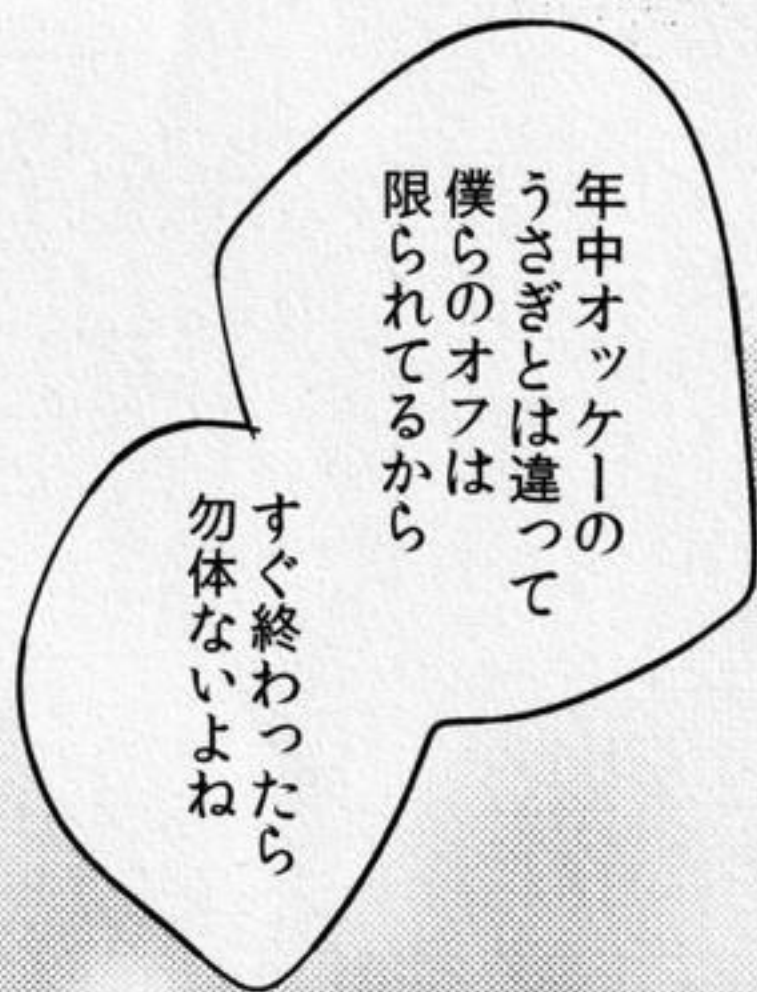 年中オッケーの
うさぎとは違って
僕らのオフは
限られてるから
すぐ終わったら
勿体ないよね